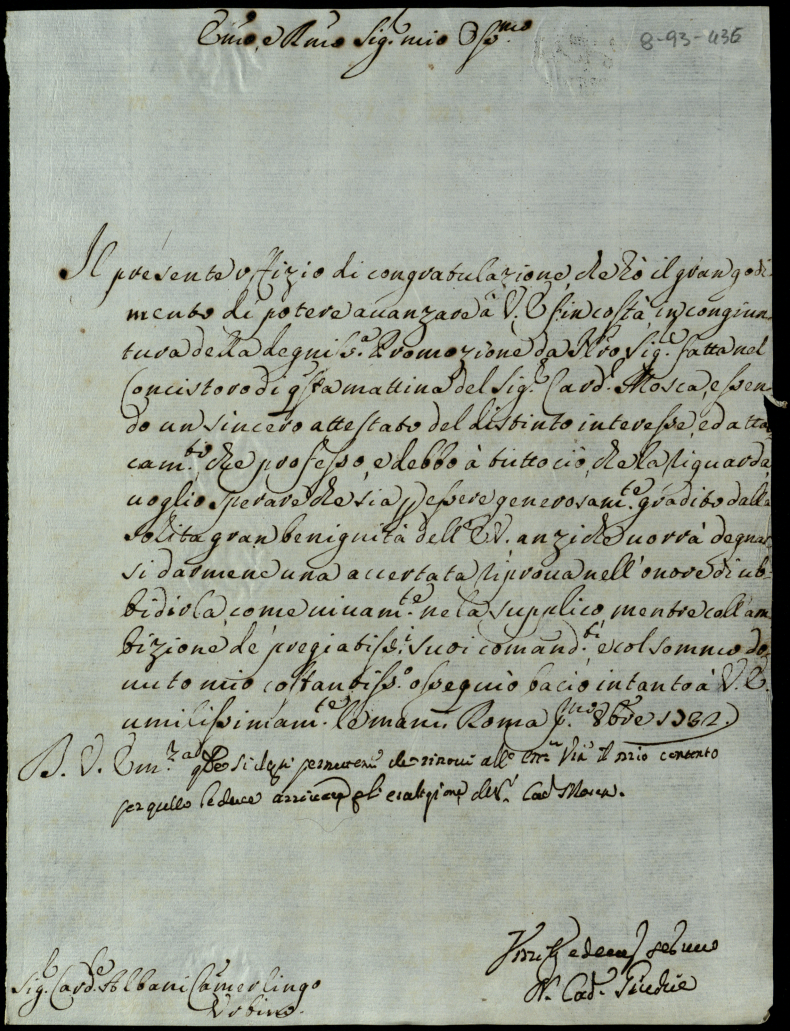 Emo, e Rmo Sig.r mio Oss.mo
8-93-036
Il presente offizio di congratulazione che hò il gran godi=
mento di potere avanzare à V. E. fin costà in congiun=
tura della degniss.a Promozione da Nro Sig.re fatta nel
Concistoro di q.sta mattina del Sig.r Card.l Mosca, essen=
do un sincero attestato del distinto interesse, ed atta=
cam.to, che professo, e debbo à tutto ciò, che la riguarda
voglio sperare che sia p essere generosam.te gradito dalla
solita gran benignità dell' E. V. anzi che vorrà degnar=
si darmene una accertata riprova nell' onore di ub=
bidirla, come vivam.te ne la supplico, mentre coll' am=
bizione de' pregiatiss.i suoi comand.ti e col sommo do=
vuto mio costantiss.o ossequio bacio intanto à V. E.
umilissimam.te le mani. Roma p.mo 8bre 1732.
B. V. Em.za si degni permettermi che rinovi all' il mio contento
per quello le deve arrivare esaltazione del Card Mosca.
Sig.r Card.le Albani Camerlingo
Urbino.
Card.